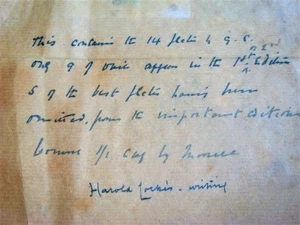 This contains the 14 plates by G. C.
only 9 of which appear in the 1st Edition
5 of the best plates having been
omitted from the important edition
by
Harold writing